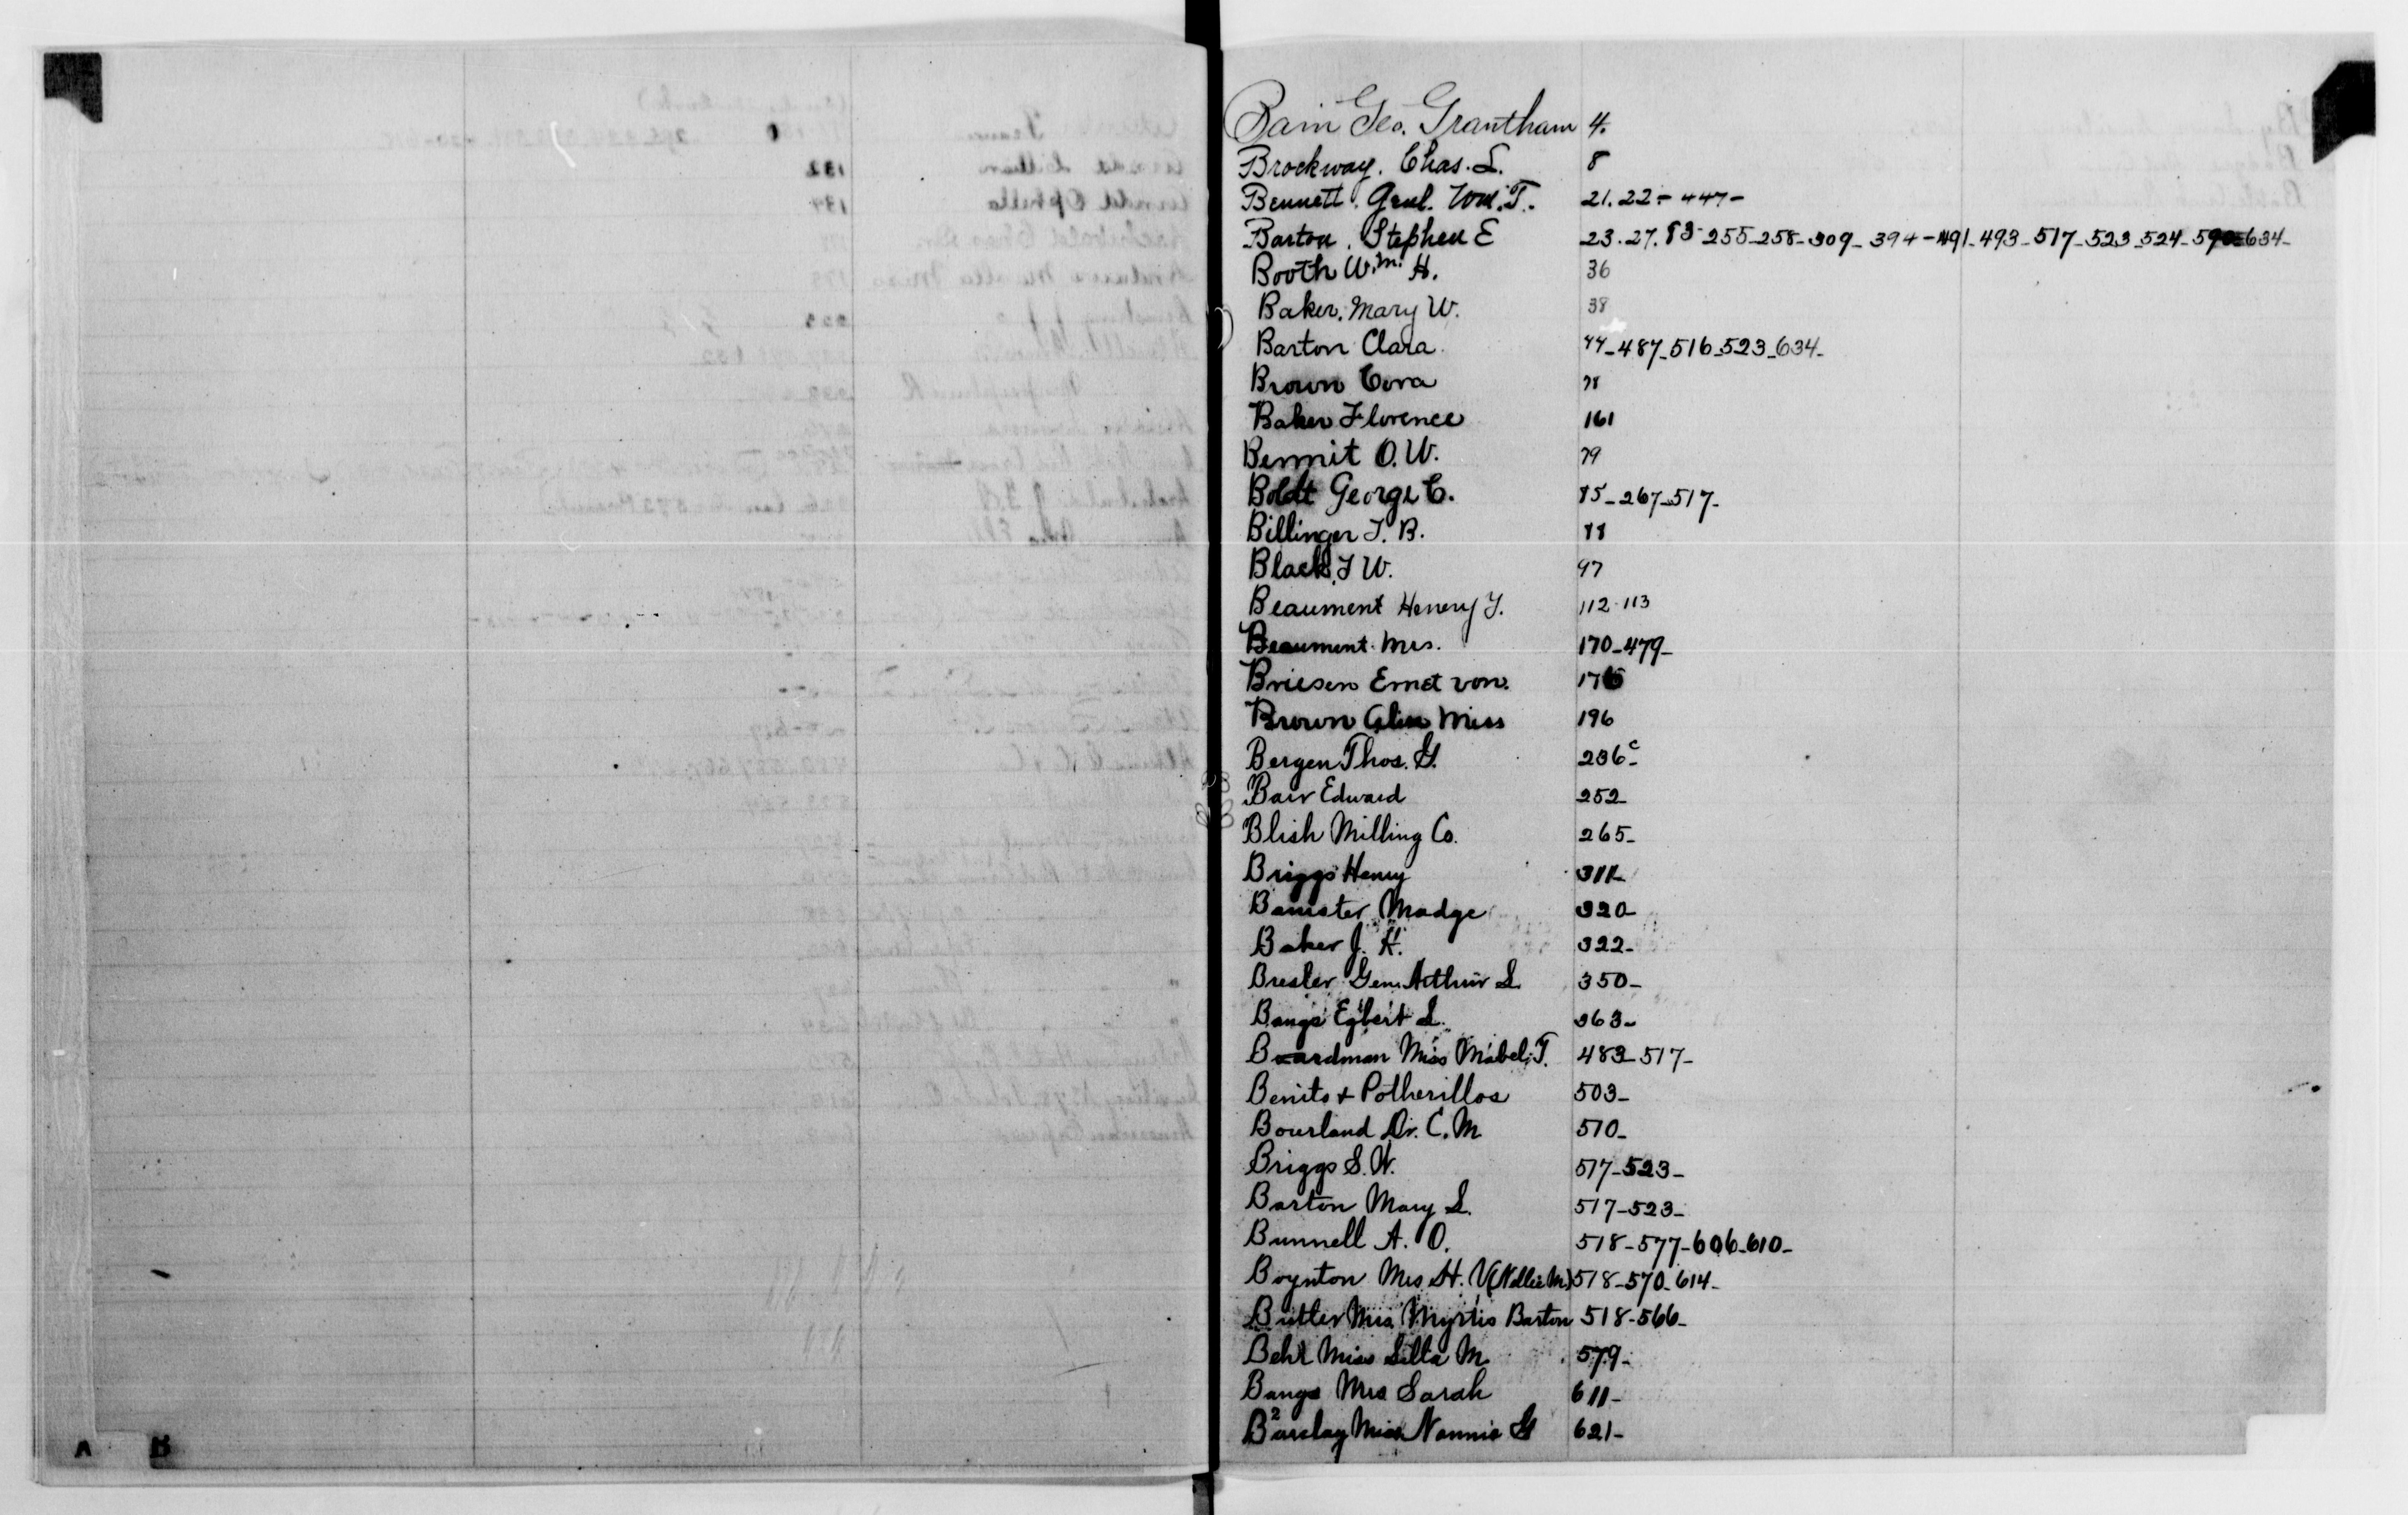 Bain Geo. Grantham 4.
Brockway, Chas. L. 8
Bennett, Genl. Wm. T. 21. 22 - 447 -
Barton, Stephen E 23. 27. 83 - 255 - 258 - 309 - 394 - 491 - 493 - 517 - 523 - 524 - 634 -
Booth Wm. H. 36
Baker, Mary W. 38
Barton Clara 44 - 487 - 516 - 523 - 634 -
Brown Cora 78
Baker Florence 161
Bennit O. W. 79
Boldt George C. 85 - 267 - 517 -
Billinger T. B. 88
Black, F W. 97
Beaument Henery Y. 112 - 113
Beaument Mrs. 170 - 479 -
Briesen Ernet von. 176
Brown Miss 196
Bergen Thos. G. 236c -
Barr Edward 252 -
Blish Milling Co. 265 -
Briggs Henry 311 -
Banister Madge 320 -
Baker J. H. 322 -
Bresler Gen. Arthur L. 350 -
Bangs Egbert L. 363 -
Boardman Miss Mabel T. 483 - 517 -
Benito + Potherillos 503 -
Bourland Dr. C. M. 570 -
Briggs S. W. 517 - 523 -
Barton Mary L. 517 - 523 -
Bunnell A. O. 518 - 577 - 606 - 610 -
Boynton Mrs H. V (Nellie M) 518 - 570 - 614 -
Butler Mrs Myrtis Barton 518 - 566 -
Behr Miss M. 579 -
Bangs Mrs Sarah 611 -
2
Barclay Miss Nannie G 621 -
A B